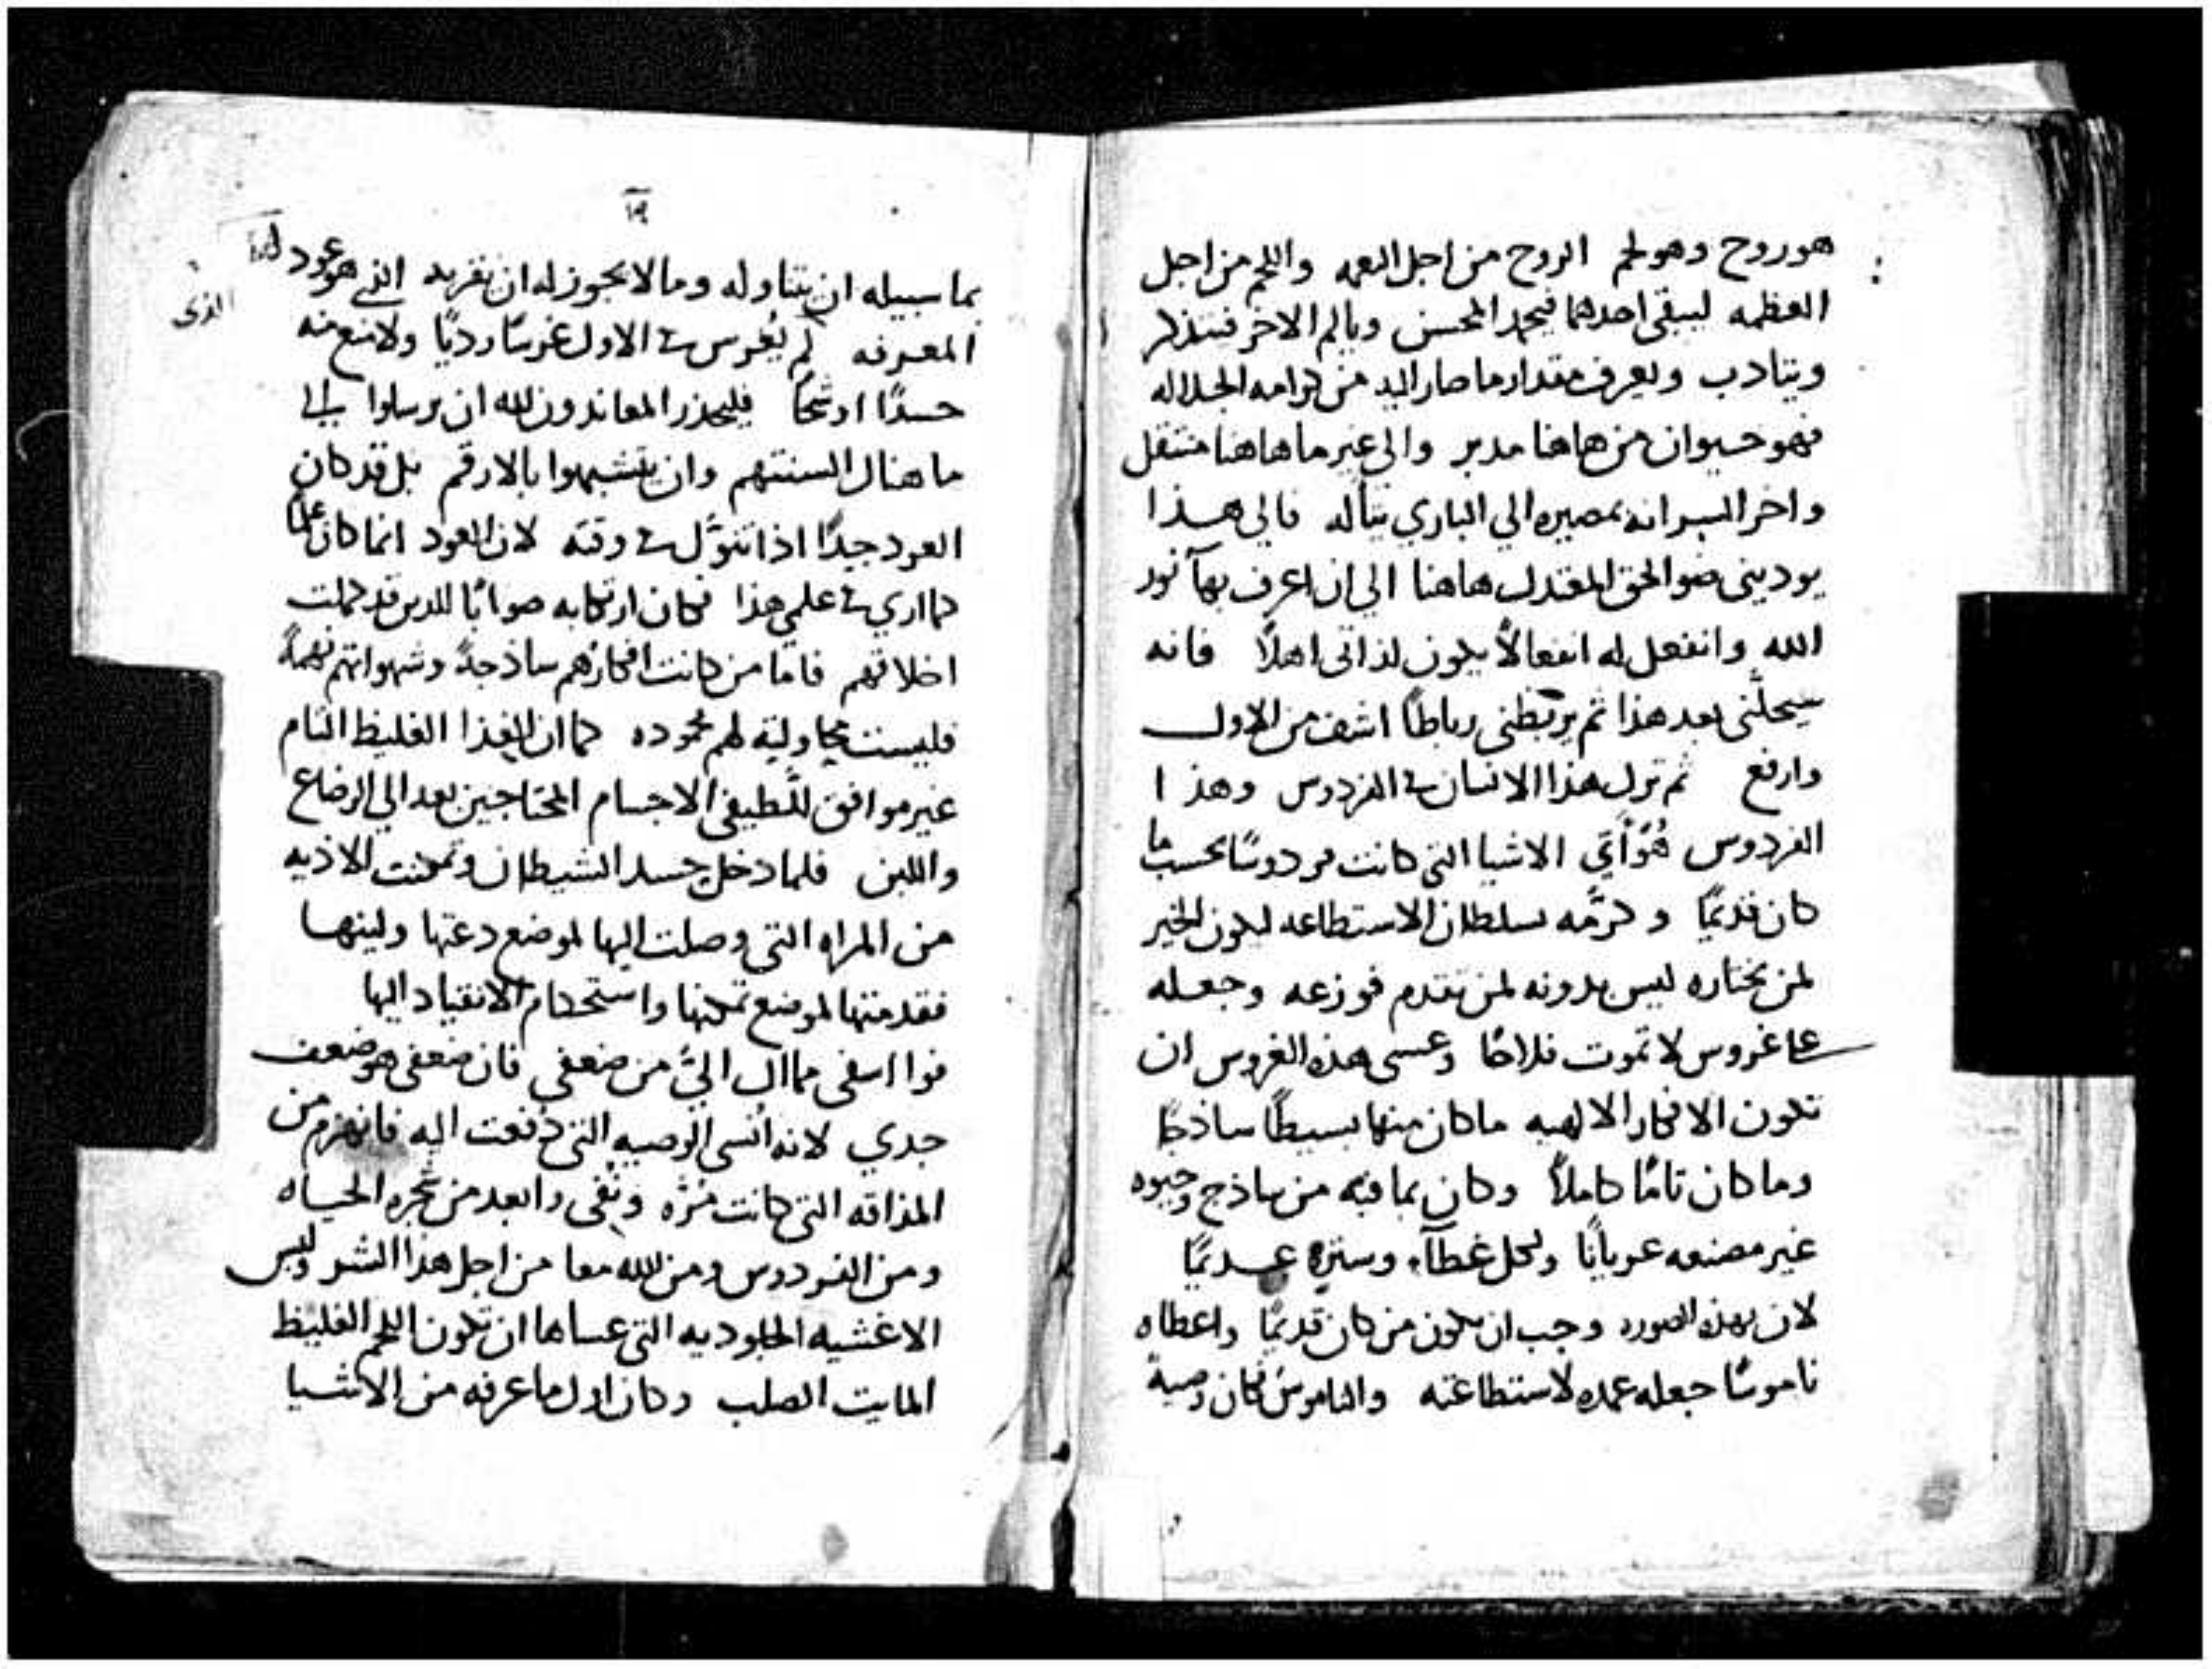 هو روح وهو لحم الروح من اجل النعمه واللحم من اجل
العظمه ليبقى احدهما فيمجد المحسن ويالم الاخر فيتذكر
ويتادب ويعرف مقدار ما صار اليه من كرامه الجلاله
فهو حيوان من هاهنا مدبر والى غير ما هاهنا منتقل
واخر السر انه بمصيره الي الباري يتأله فالي هذا
يوديني ضو الحق المعتدل هاهنا الي ان اعرف بهآ نور
الله وانفعل له انفعالاً يكون لذاتى اهلاً فانه
سيحلّني بعد هذا ثم يربطني رباطًا اشف من الاول
وارفع ثم ترك هذا الانسان في الفردوس وهذا
الفردوس هُوَ أي الاشيا التي كانت فردوسًا بحسب ما
كان قديمًا وكرَّمه بسلطان الاستطاعه ليكون الخير
لمن يختاره ليس بدونه لمن تقدم فوزعه وجعله
على غروس لا تموت فلاحًا وعسى هذه الغروس ان
تكون الافكار الالهيه ما كان منها بسيطًا ساذجًا
وما كان تامًا كاملاً وكان بما فيه من ساذج وحيوه
غير مصنعه عريانًا ولكل غطآء وستره عديمًا
لان بهذه الصوره وجب ان يكون من كان قديمًا واعطاه
ناموسًا جعله عمده لاستطاعته والناموس كان وصية
١٩
بما سبيله ان يتناوله وما لا يجوز له ان يقربه الذي هو عود
المعرفه لم يُغرس في الاول غرسًا رديًا ولا منع منه
حسدًا او شحًا فليحذر المعاندون لله ان يرسلوا الي
ما هناك السنتهم وان يتشبهوا بالارقم بل قد كان
العود جيدًا اذا تنوّل في وقته لان العود انما كان علمًا
كما اري في علمي هذا فكان ارتكابه صوابًا للدين قد كملت
اخلاقهم فاما من كانت افكارهم ساذجة وشهواتهم نهمةً
فليست بجاولية لهم محموده كما ان الغذا الغليظ التام
غير موافق للّطيفي الاجسام المحتاجين بعد الي الرضاع
واللبن فلما دخل حسد الشيطان وتمكنت الاذيه
من المراه التي وصلت اليها لموضع دعتها ولينها
فقدمتها لموضع تمكنها واستحكام الانقياد اليها
فوا اسفى مما ال اليَّ من ضعفي فان ضعفي هو ضعف
جدي لانه انسى الوصيه التي دُفعت اليه فانهزم من
المذاقه التي كانت مُرّه ونُفى وابعد من شجره الحياه
ومن الفردوس ومن الله معا من اجل هذا الشر ولبس
الاغشيه الجلوديه التي عساها ان تكون اللحم الغليظ
المايت الصلب وكان اول ما عرفه من الاشيا
الذى